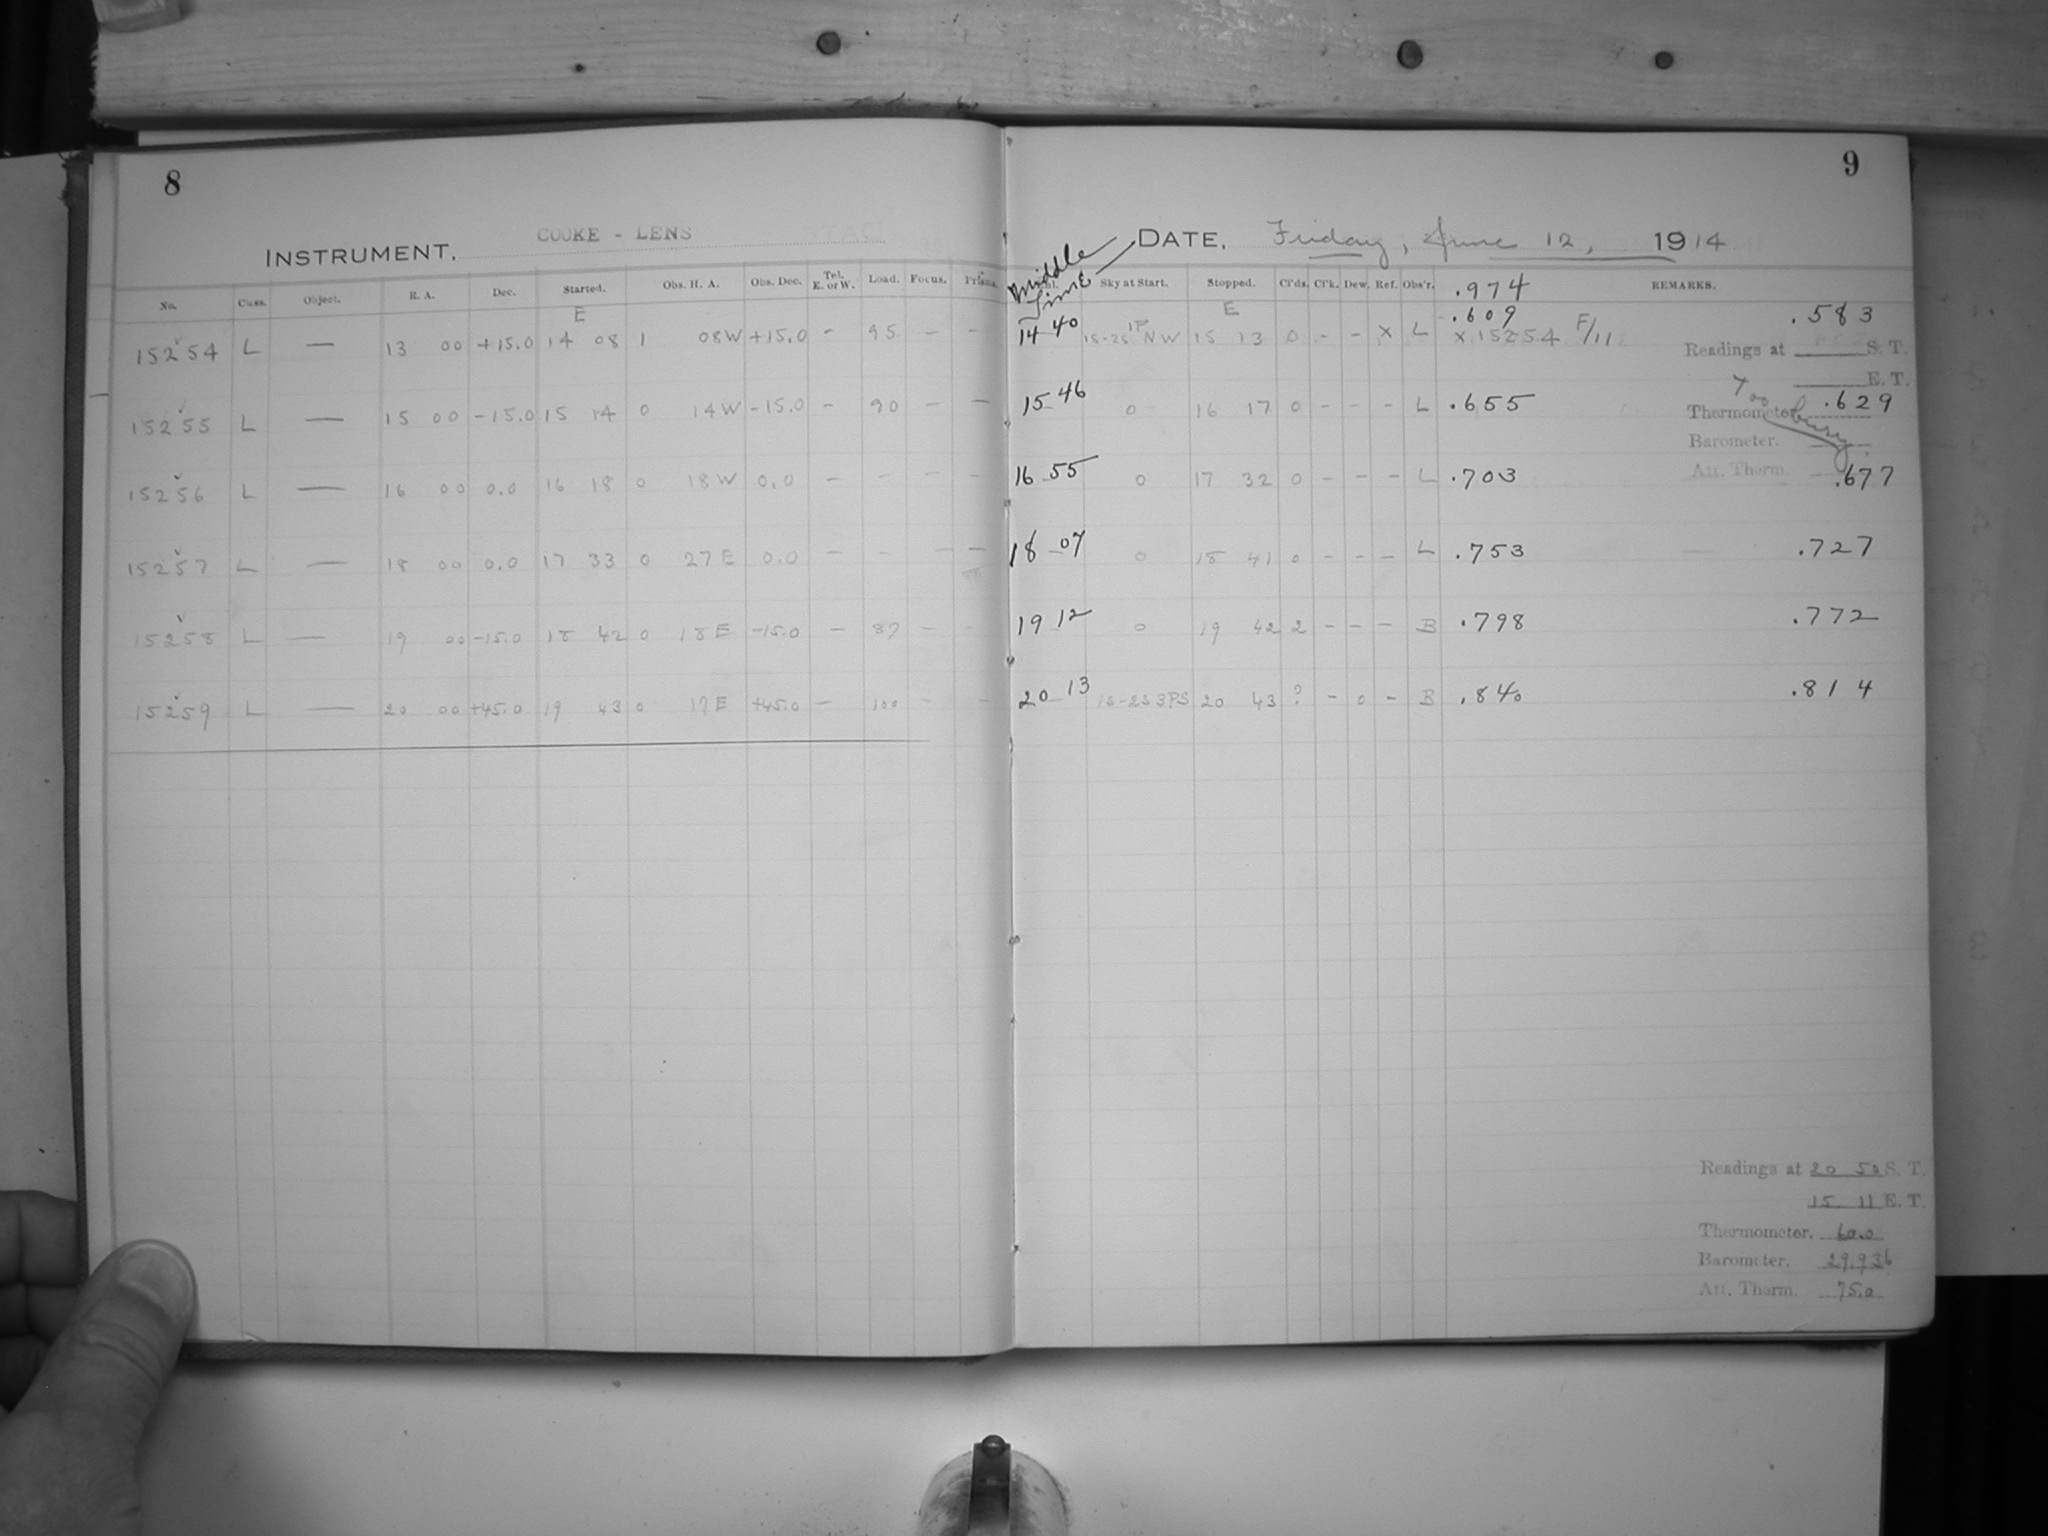 8
INSTRUMENT. COOKE - LENS
No. Class. Object. R. A. Dec. Started. Obs. H. A. Obs. Dec. Tel. E. or W. Load. Focus. Prisms.
E
15254 L — 13 00 +15.0 14 08 1 08W +15.0 - 95 — —
15255 L — 15 00 -15.0 15 14 0 14W -15.0 - 90 — —
15256 L — 16 00 0.0 16 18 0 18W 0.0 - - — —
15257 L — 18 00 0.0 17 33 0 27E 0.0 — - — —
15258 L — 19 00 -15.0 18 42 0 18E -15.0 — 87 — —
15259 L — 20 00 +45.0 19 43 0 17E +45.0 — 100 — —
9
DATE, Friday, June 12, 1914
Middle Time
Sky at Start. Stopped. Cl'ds. Cl'k. Dew. Ref. Obs'r. .974 REMARKS.
E .609 .583
14 40 15-25 1P NW 15 13 0 - - X L x 15254 F/11
Readings at S. T.
E. T.
15 46 0 16 17 0 - - - L .655 .629
Thermometer. Too busy
Barometer.
Att. Therm.
16 55 0 17 32 0 - - - L .703 .677
18 07 0 18 41 0 - - - L .753 .727
19 12 0 19 42 2 - - - B .798 .772
20 13 15-25 3PS 20 43 ? - 0 - B .840 .814
Readings at 20 50 S. T.
15 11 E. T.
Thermometer. 60.0
Barometer. 29.936
Att. Therm. 75.0